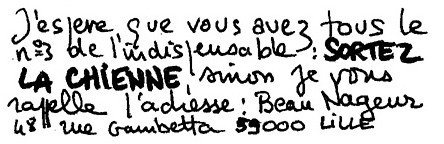 J'espère que vous avez tous le
n°3 de l'indispensable : SORTEZ
LA CHIENNE, sinon je vous
rappelle l'adresse : Beau Nageur
48 rue Gambetta 59000 LILLE